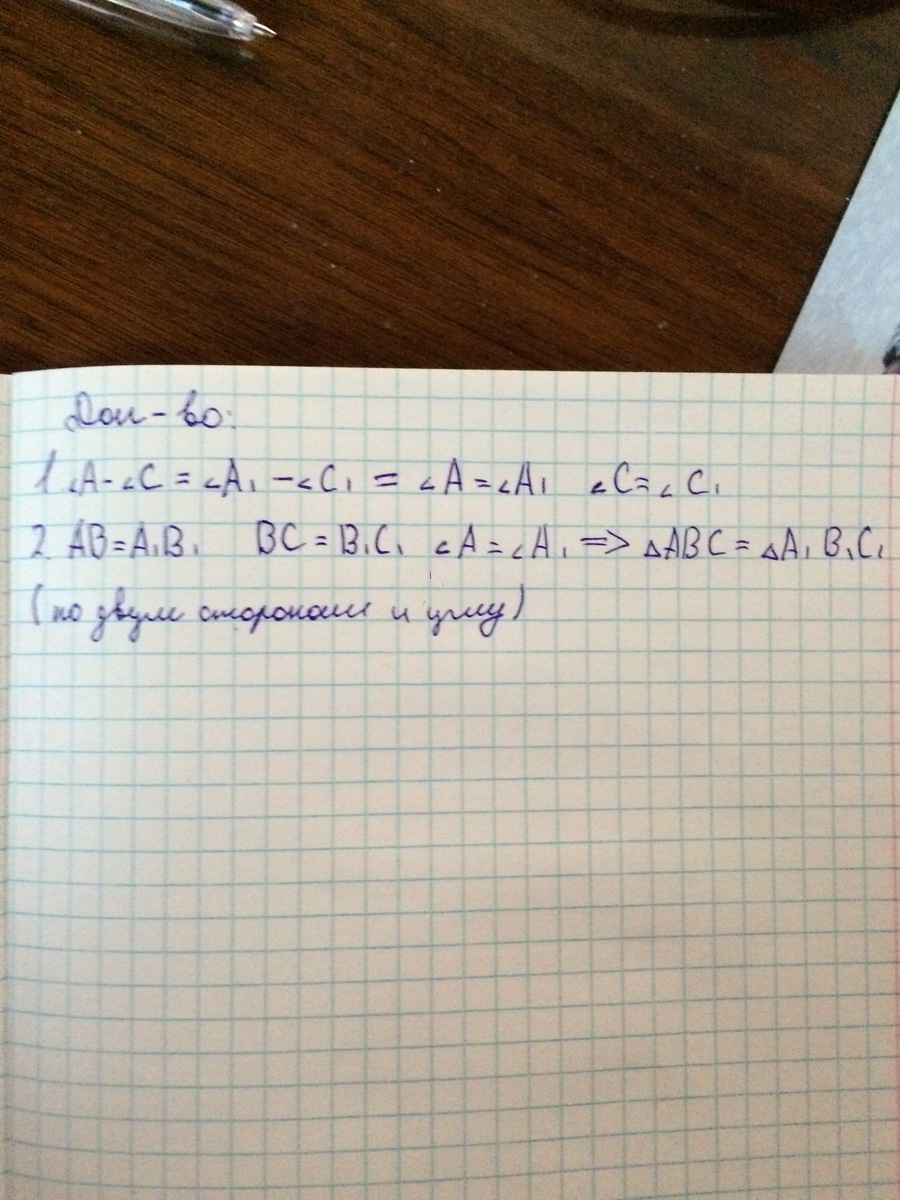 Док-во:
1. ∠A-∠C = ∠A₁ -∠C₁ = ∠A=∠A₁ ∠C=∠C₁
2. AB=A₁B₁ BC=B₁C₁ ∠A=∠A₁ => △ABC=△A₁B₁C₁
(по двум сторонам и углу)